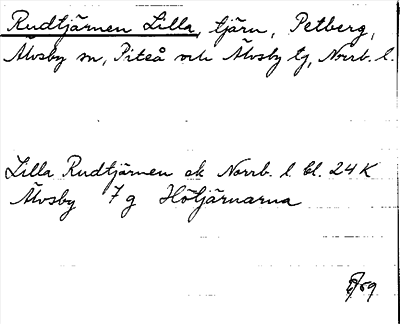 Rudtjärnen Lilla, tjärn, Petberg,
Älvsby sn, Piteå och Älvsby tg, Norrb. l.
Lilla Rudtjärnen ek Norrb. l bl. 24 K
Älvsby 7 g Hötjärnarna
59